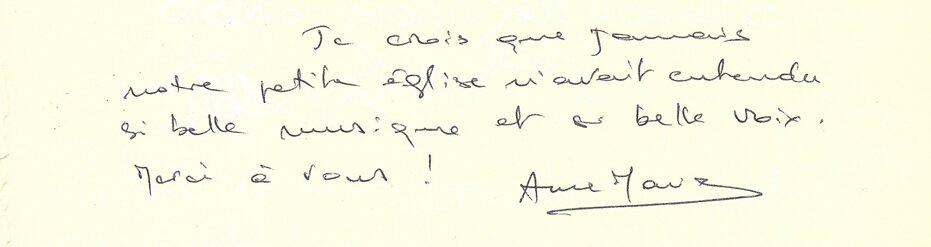 Je crois que jamais
notre petite église n'avait entendu
si belle musique et si belle voix.
Merci à vous !
Anne Marie